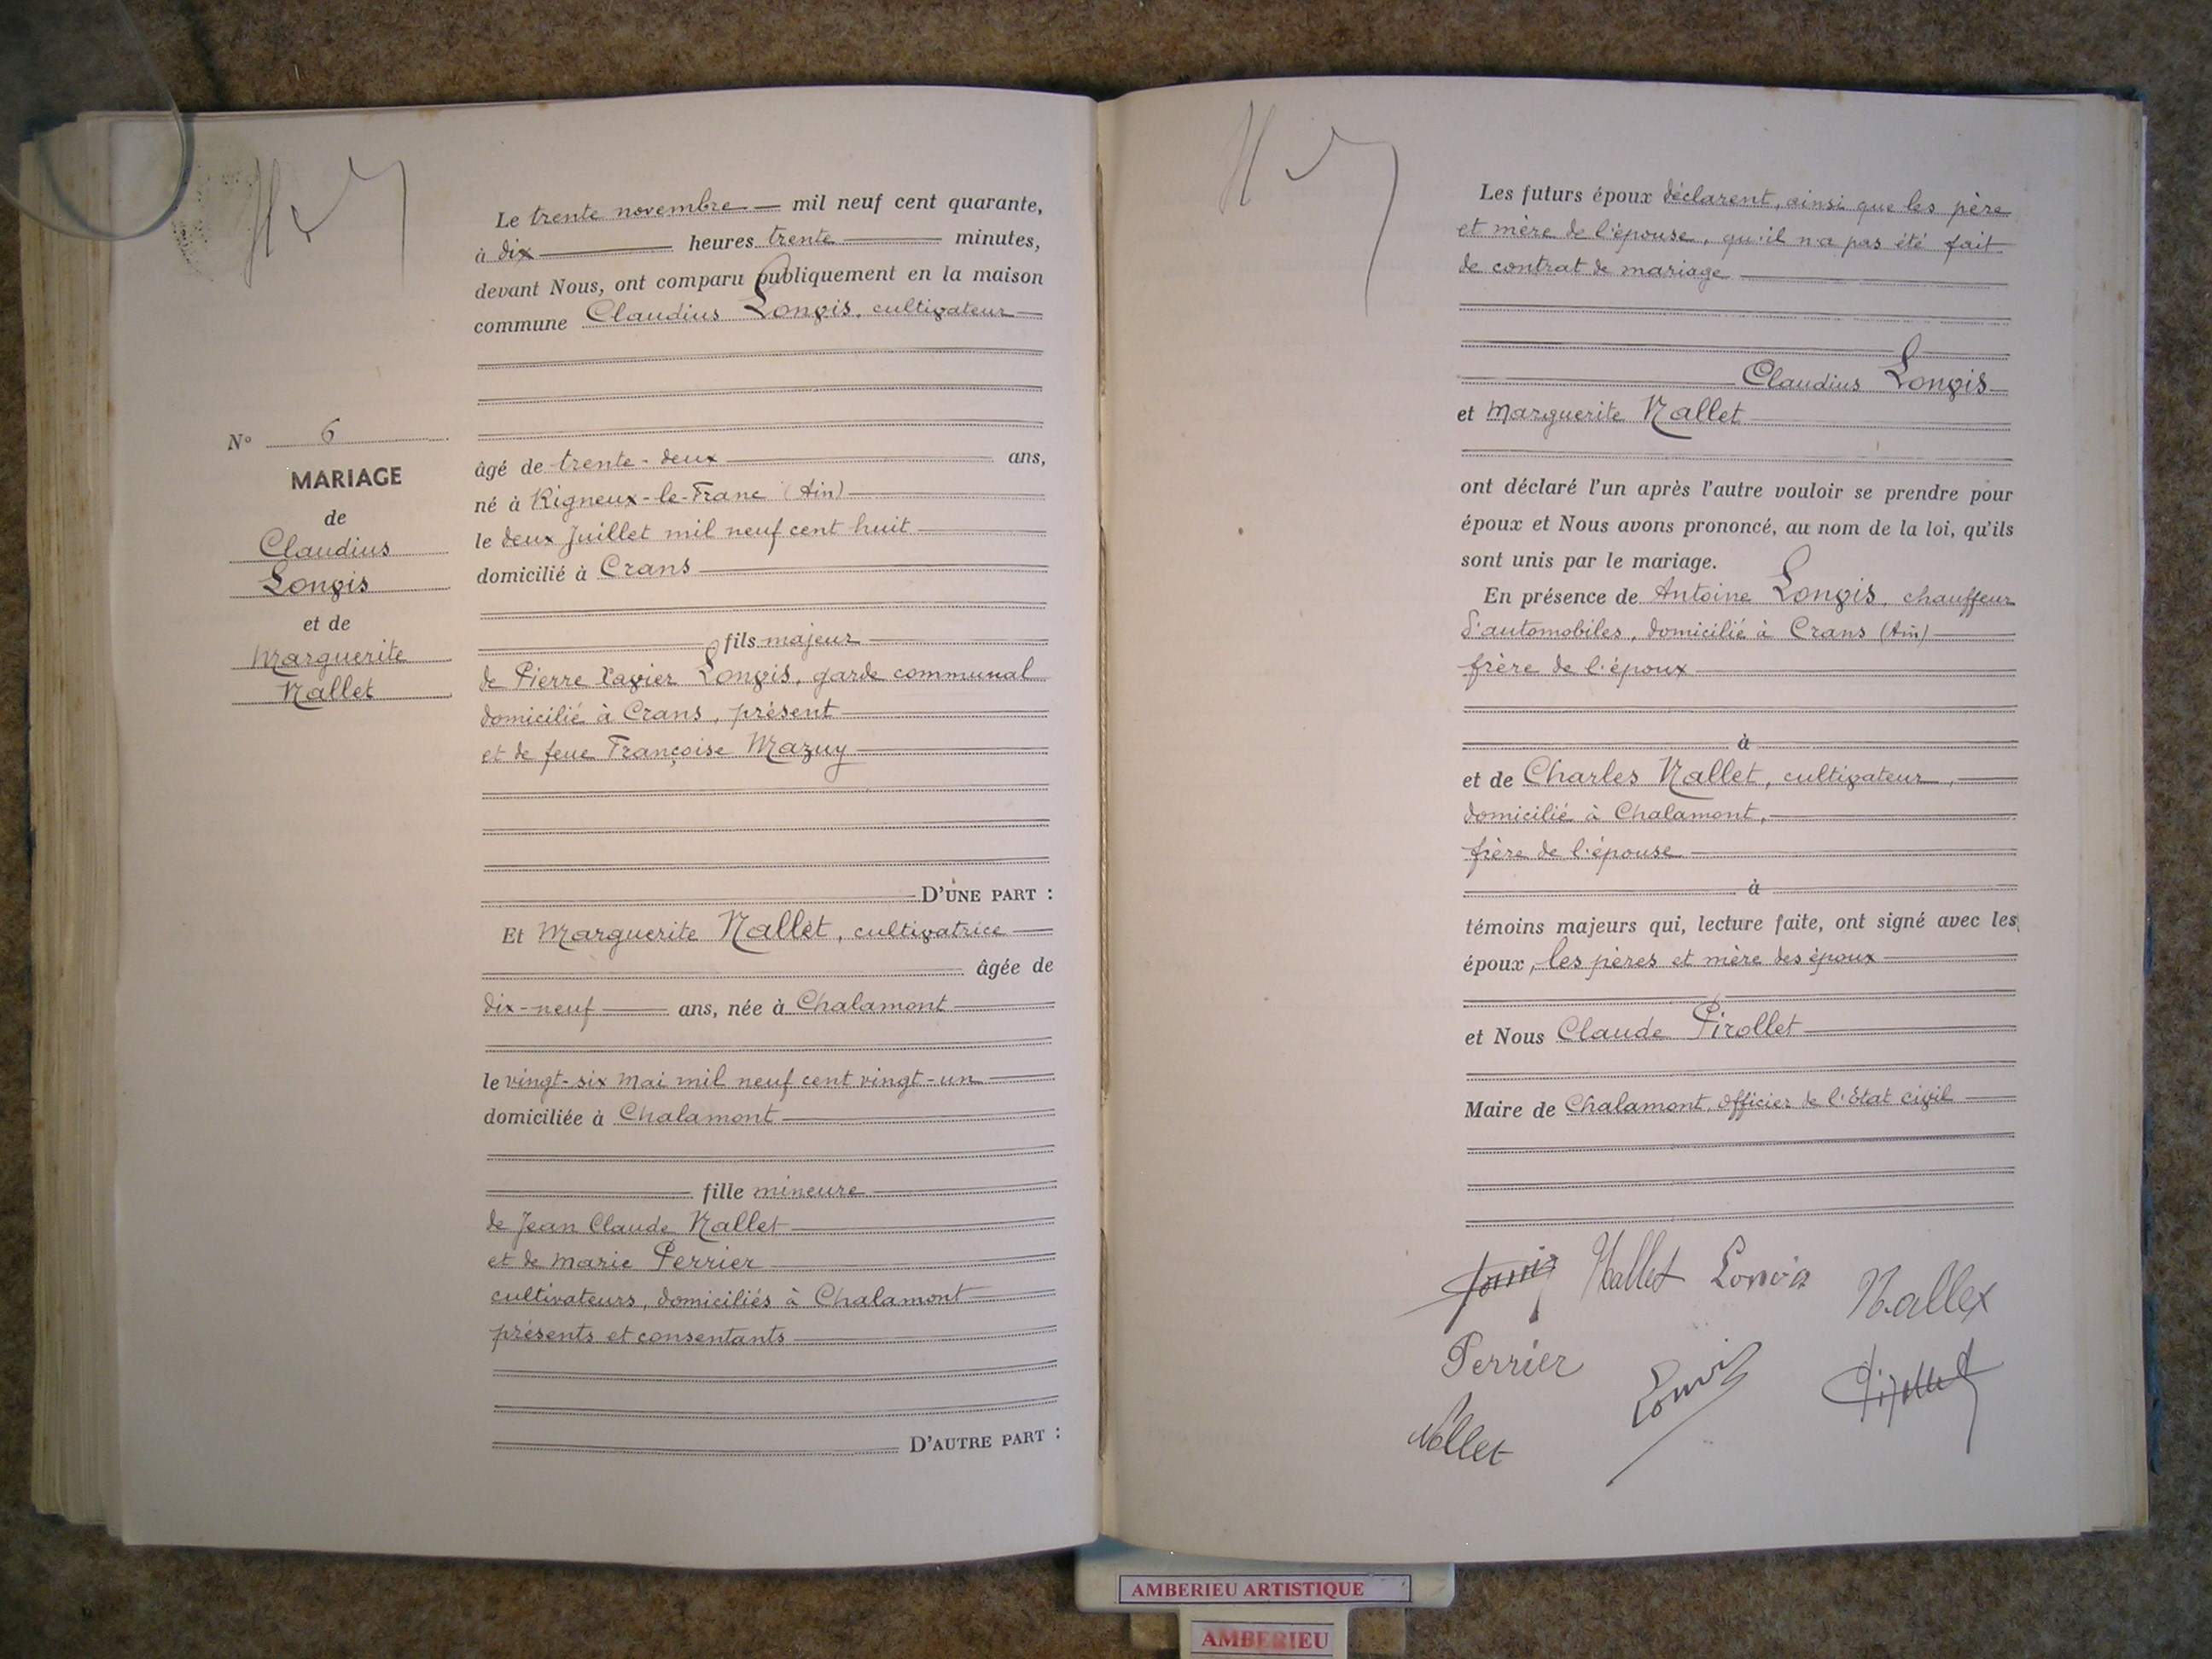 Le trente novembre mil neuf cent quarante,
à dix heures trente minutes,
devant Nous, ont comparu publiquement en la maison
commune Claudius Lonvis, cultivateur
N° 6
MARIAGE
de
Claudius
Lonvis
et de
Marguerite
Nallet
âgé de trente-deux ans,
né à Rigneux-le-Franc (Ain)
le deux Juillet mil neuf cent huit
domicilié à Crans
fils majeur
de Pierre Xavier Lonvis, garde communal
domicilié à Crans, présent
et de feue Françoise Mazuy
D'UNE PART :
Et Marguerite Nallet, cultivatrice
âgée de
dix-neuf ans, née à Chalamont
le vingt-six Mai mil neuf cent vingt-un
domiciliée à Chalamont
fille mineure
de Jean Claude Nallet
et de Marie Perrier
cultivateurs, domiciliés à Chalamont
présents et consentants
D'AUTRE PART :
Les futurs époux déclarent, ainsi que les père
et mère de l'épouse, qu'il n'a pas été fait
de contrat de mariage
Claudius Lonvis
et Marguerite Nallet
ont déclaré l'un après l'autre vouloir se prendre pour
époux et Nous avons prononcé, au nom de la loi, qu'ils
sont unis par le mariage.
En présence de Antoine Lonvis, chauffeur
d'automobiles, domicilié à Crans (Ain)
frère de l'époux
à
et de Charles Nallet, cultivateur,
domicilié à Chalamont,
frère de l'épouse
à
témoins majeurs qui, lecture faite, ont signé avec les
époux, les pères et mère des époux
et Nous Claude Pirollet
Maire de Chalamont, officier de l'Etat civil
Nallet Lonvis Nallet
Perrier Lonvis Pirollet
Nallet
AMBERIEU ARTISTIQUE
AMBERIEU